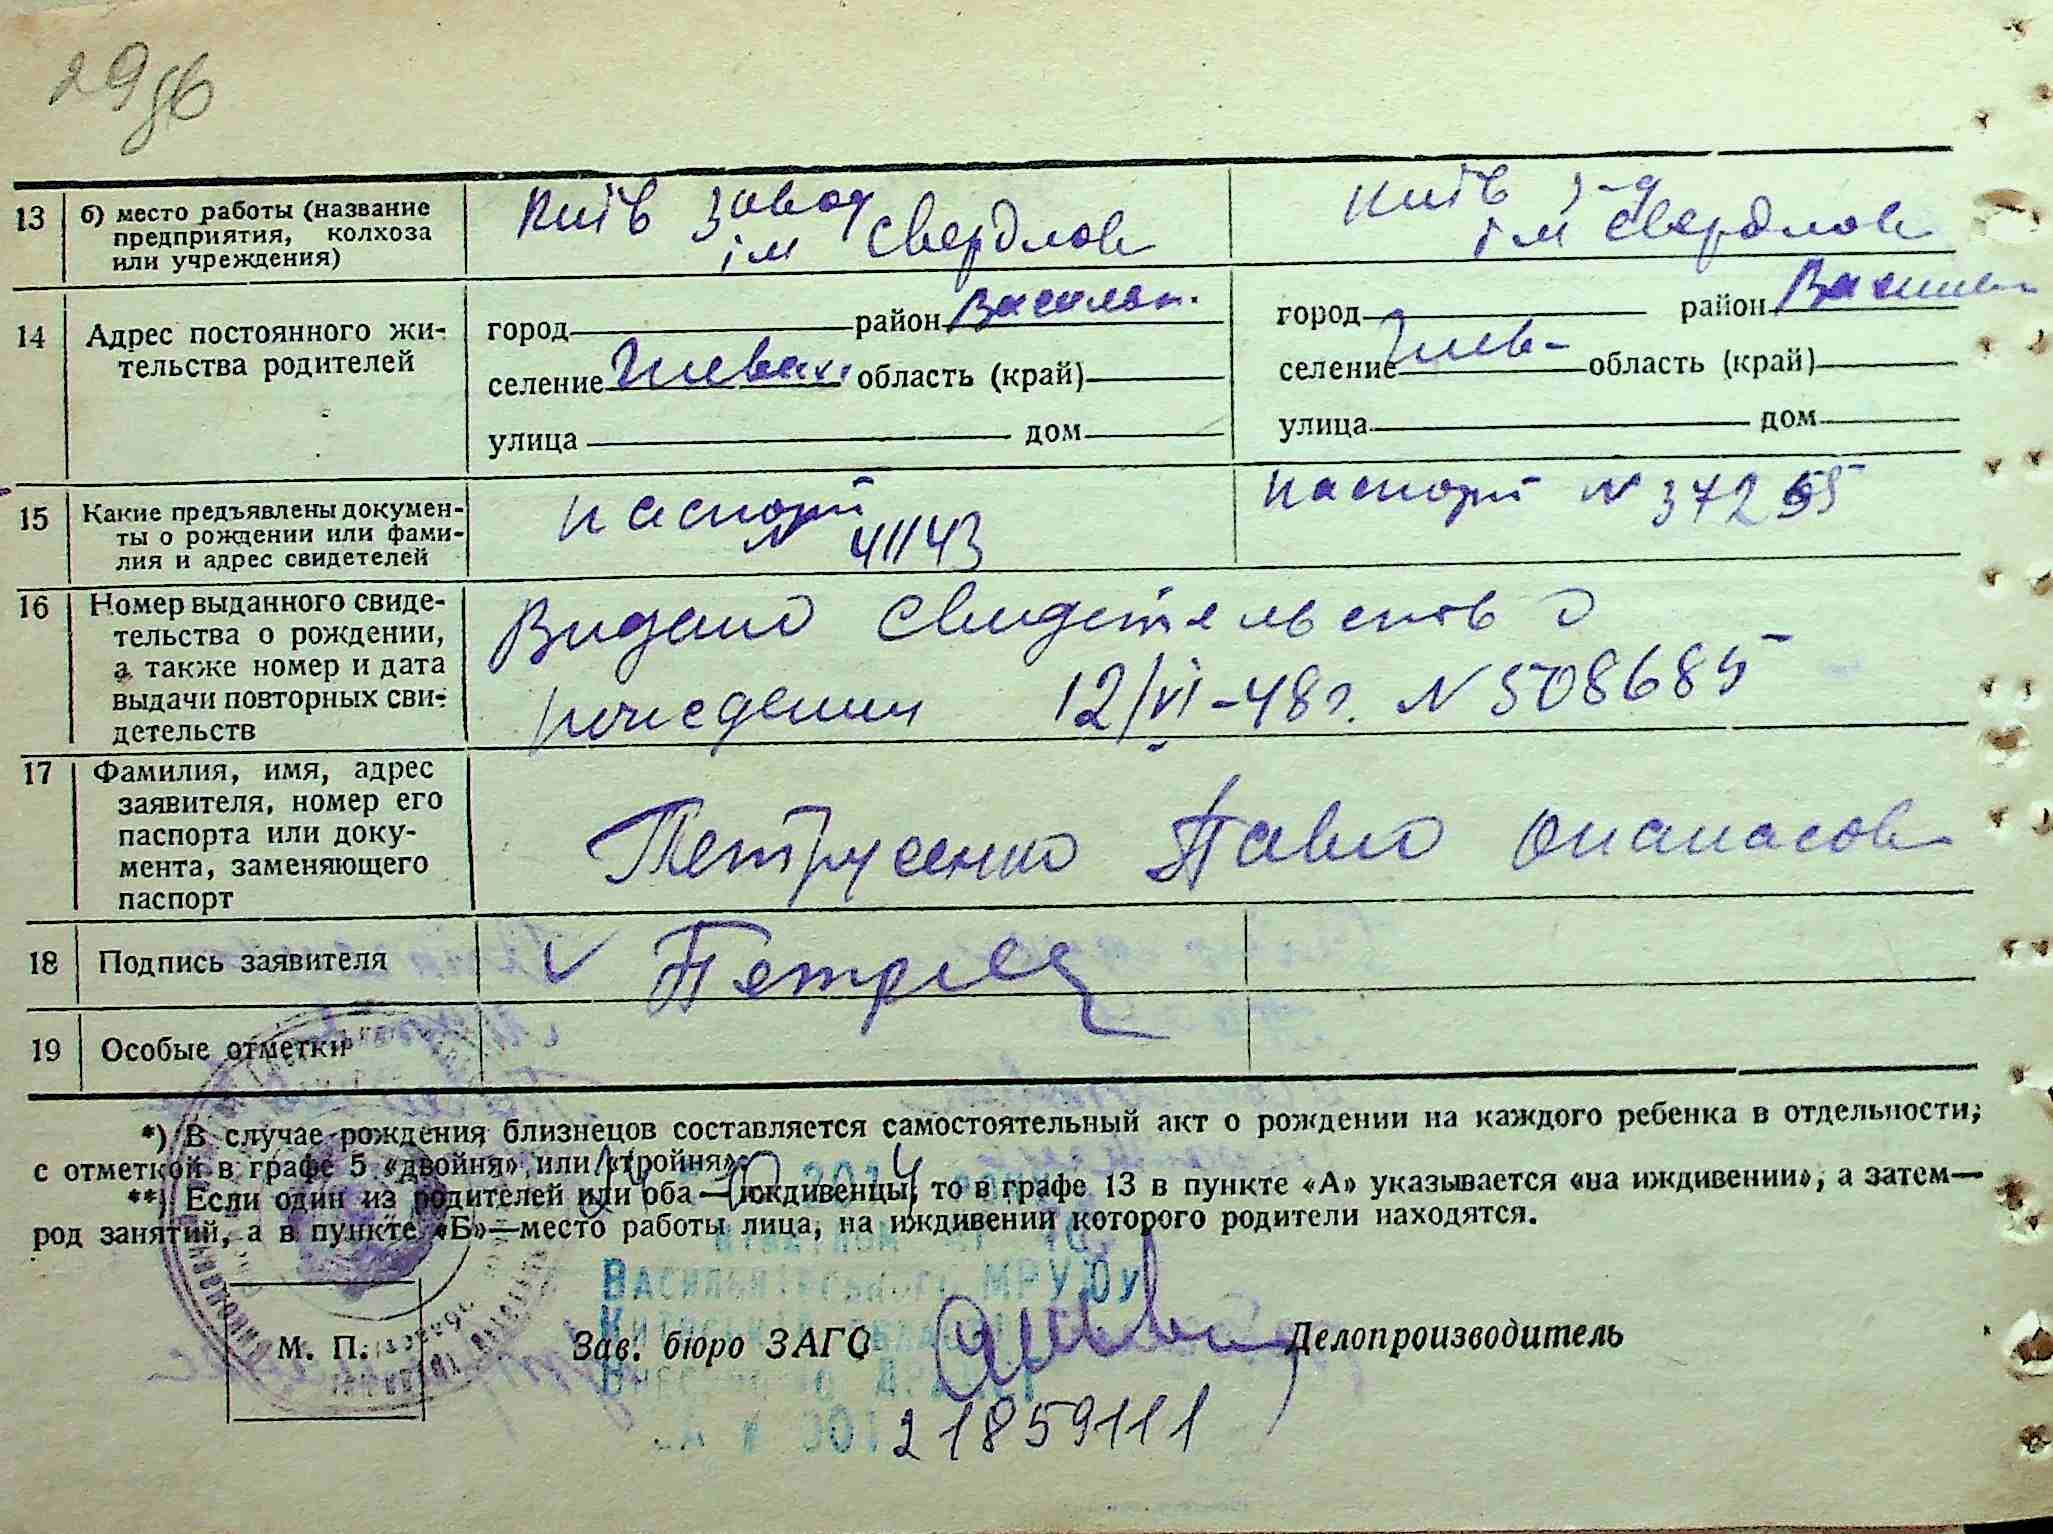 29 зв
13 б) место работы (название предприятия, колхоза или учреждения)
Київ завод ім Свердлов
Київ з-д ім Свердлов
14 Адрес постоянного жительства родителей
город район Васильк.
селение область (край)
улица дом
город район
селение область (край)
улица дом
15 Какие предъявлены документы о рождении или фамилия и адрес свидетелей
паспорт № 41143
паспорт № 37255
16 Номер выданного свидетельства о рождении, а также номер и дата выдачи повторных свидетельств
Видано свидетельство о
рождении 12/VI-48г. № 508685
17 Фамилия, имя, адрес заявителя, номер его паспорта или документа, заменяющего паспорт
Петрусенко Павло Опанасов
18 Подпись заявителя
19 Особые отметки
*) В случае рождения близнецов составляется самостоятельный акт о рождении на каждого ребенка в отдельности,
с отметкой в графе 5 «двойня» или «тройня».
**) Если один из родителей или оба—иждивенцы, то в графе 13 в пункте «А» указывается «на иждивении», а затем—
род занятий, а в пункте «Б»—место работы лица, на иждивении которого родители находятся.
М. П. Зав. бюро ЗАГС Делопроизводитель
21859111